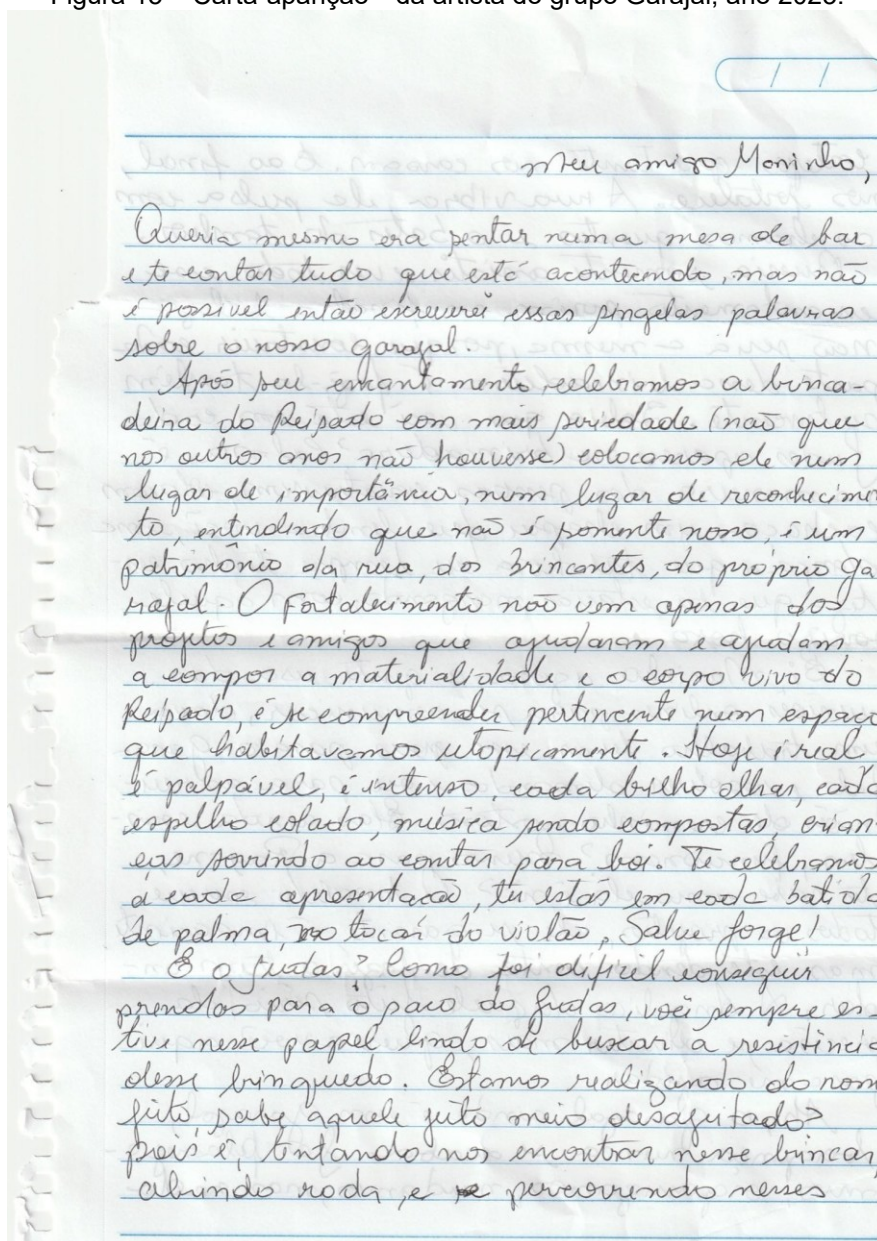 Figura 18 – Carta-aparição – da artista do grupo Garajal, ano 2023.
/ /
Meu amigo Moninho,
Queria mesmo era sentar numa mesa de bar
e te contar tudo que está acontecendo, mas não
é possível então escreverei essas singelas palavras
sobre o nosso garajal.
Após seu encantamento, celebramos a brinca-
deira do Reisado com mais seriedade (não que
nos outros anos não houvesse) colocamos ele num
lugar de importância, num lugar de reconhecimen
to, entendendo que não é somente nosso, é um
patrimônio da rua, dos brincantes, do próprio Ga
rajal. O Fortalecimento não vem apenas dos
projetos e amigos que ajudaram e ajudam
a compor a materialidade e o corpo vivo do
Reisado, é se compreender pertencente num espaço
que habitavamos utopicamente. Hoje é real
é palpável, é intenso, cada brilho olhar, cada
espelho colado, música sendo compostas, crian
ças sorrindo ao contar para boi. Te celebramos
a cada apresentação, tu estás em cada batida
de palma, no tocar do violão, Salve Jorge!
E o Judas? Como foi difícil conseguir
prendas para o saco do Judas, você sempre es
tive nesse papel lindo de buscar a resistência
desse brinquedo. Estamos realizando do nosso
jeito, sabe aquele jeito meio desajeitado?
pois é, tentando nos encontrar nesse brincar,
abrindo roda, e percorrendo nesses